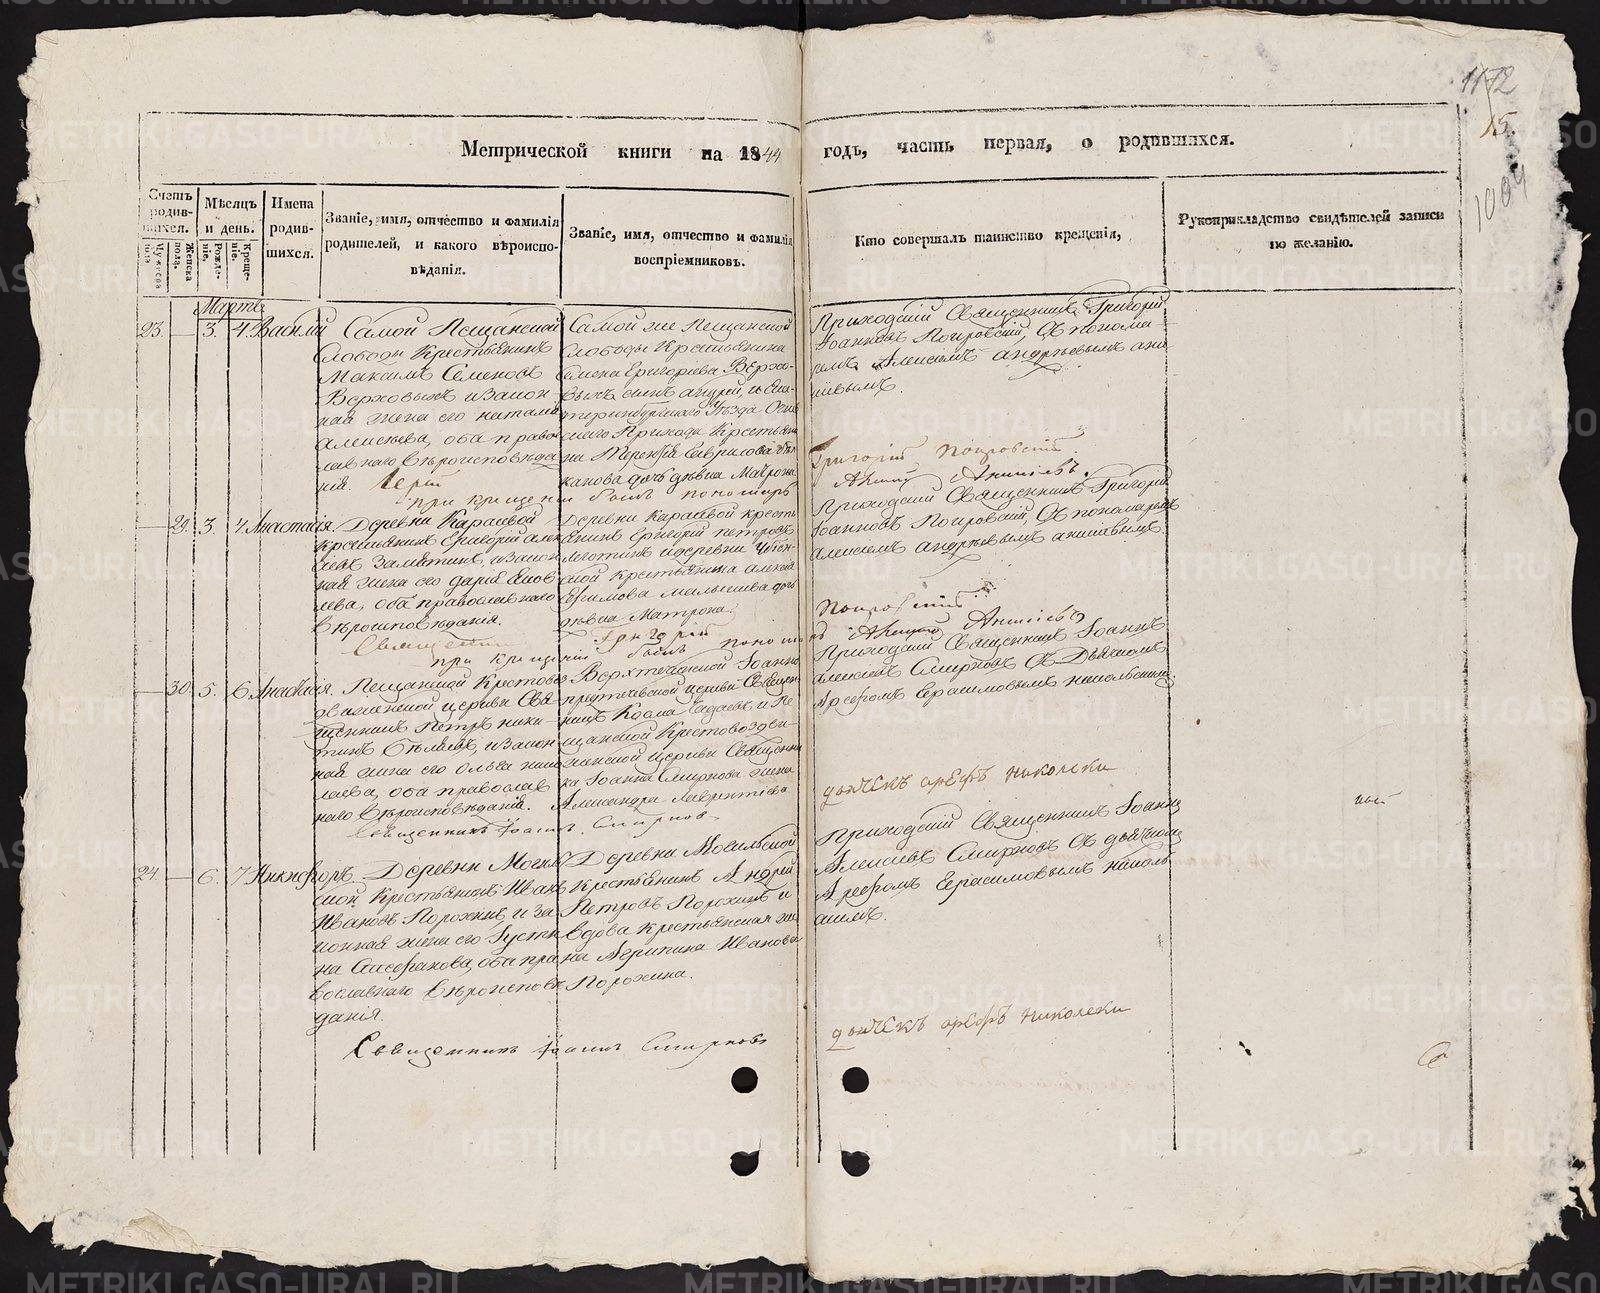 1172
15.
1004
Метрической книги на 1844 годъ, часть первая, о родившихся.
Счетъ родив-шихся.
Мужеска пола.
Женска пола.
Мѣсяцъ и день.
Рожде-нія.
Креще-нія.
Имена родив-шихся.
Званіе, имя, отчество и фамилія
родителей, и какого вѣроиспо-
вѣданія.
Званіе, имя, отчество и фамилія
воспріемниковъ.
Кто совершалъ таинство крещенія,
Рукоприкладство свидѣтелей записи
по желанію.
Мартъ
23. — 3. 4. Василій
Самой Пещанской
Слободы Крестьянинъ
Максимъ Семеновъ
Верховыхъ и закон-
ная жена его
Алексѣева, оба право-
славнаго вѣроисповѣда-
нія.
Самой же Пещанской
Слободы Крестьянина
Семена Григорьева Верхо-
выхъ сынъ Андрей, и Ека-
теринбургскаго Уѣзда
Прихода Крестьяни-
на Терентія Гаврилова
канова дочь дѣвка Матрона
при крещеніи былъ пономарь
Приходскій Священникъ Григорій
Іоанновъ Покровскій, Съ понома-
ремъ Алексѣемъ Андреевымъ Ани-
кіевымъ.
Григорій Покровскій
Аникіевъ.
— 29. 3. 4. Анастасія.
Деревни Караевой
Крестьянинъ Григорій Алек-
сѣевъ Замятинъ, и закон-
ная жена его Дарія Яков-
лева, оба православнаго
вѣроисповѣданія.
Священникъ Григорій
Деревни Караевой кресть-
янинъ Григорій Петровъ
и деревни
ской Крестьянина Алексѣя
Ефимова Малышева дочь
дѣвка Матрона.
при крещеніи былъ пономарь
Приходскій Священникъ Григорій
Іоанновъ Покровскій, Съ пономаремъ
Алексѣемъ Андреевымъ Аникіевымъ.
Покровскій
Аникіевъ
— 30. 5. 6. Анастасія.
Пещанской Крестовоз-
движенской церкви Свя-
щенникъ Петръ Ники-
тинъ Бѣляевъ, и закон-
ная жена его Ольга Нико-
лаева, оба православ-
наго вѣроисповѣданія.
Верхтеченской Іоанно-
предтечевской церкви Священ-
никъ Козма Гадаевъ и Пе-
щанской Крестовоздви-
женской церкви Священни-
ка Іоанна Смирнова жена
Александра Лаврентьева
Священникъ Іоаннъ Смирновъ
Приходскій Священникъ Іоаннъ
Алексѣевъ Смирновъ Съ Дьячкомъ
Арефомъ Герасимовымъ Никольскимъ.
дьячекъ Арефъ Николски
24. — 6. 7. Никифоръ.
Деревни Могиль-
ской Крестьянинъ Иванъ
Ивановъ Порохинъ, и за-
конная жена его Іусти-
на Ксенофонтова, оба пра-
вославнаго вѣроисповѣ-
данія.
Деревни Могильской
Крестьянинъ Андрей
Петровъ Порохинъ и
вдова крестьянская же-
на Агрипина Иванова
Порохина.
Приходскій Священникъ Іоаннъ
Алексѣевъ Смирновъ Съ дьячкомъ
Арефомъ Герасимовымъ Николь-
скимъ.
Священникъ Іоаннъ Смирновъ
дьячекъ Арефъ Николски
METRIKI.GASO-URAL.RU